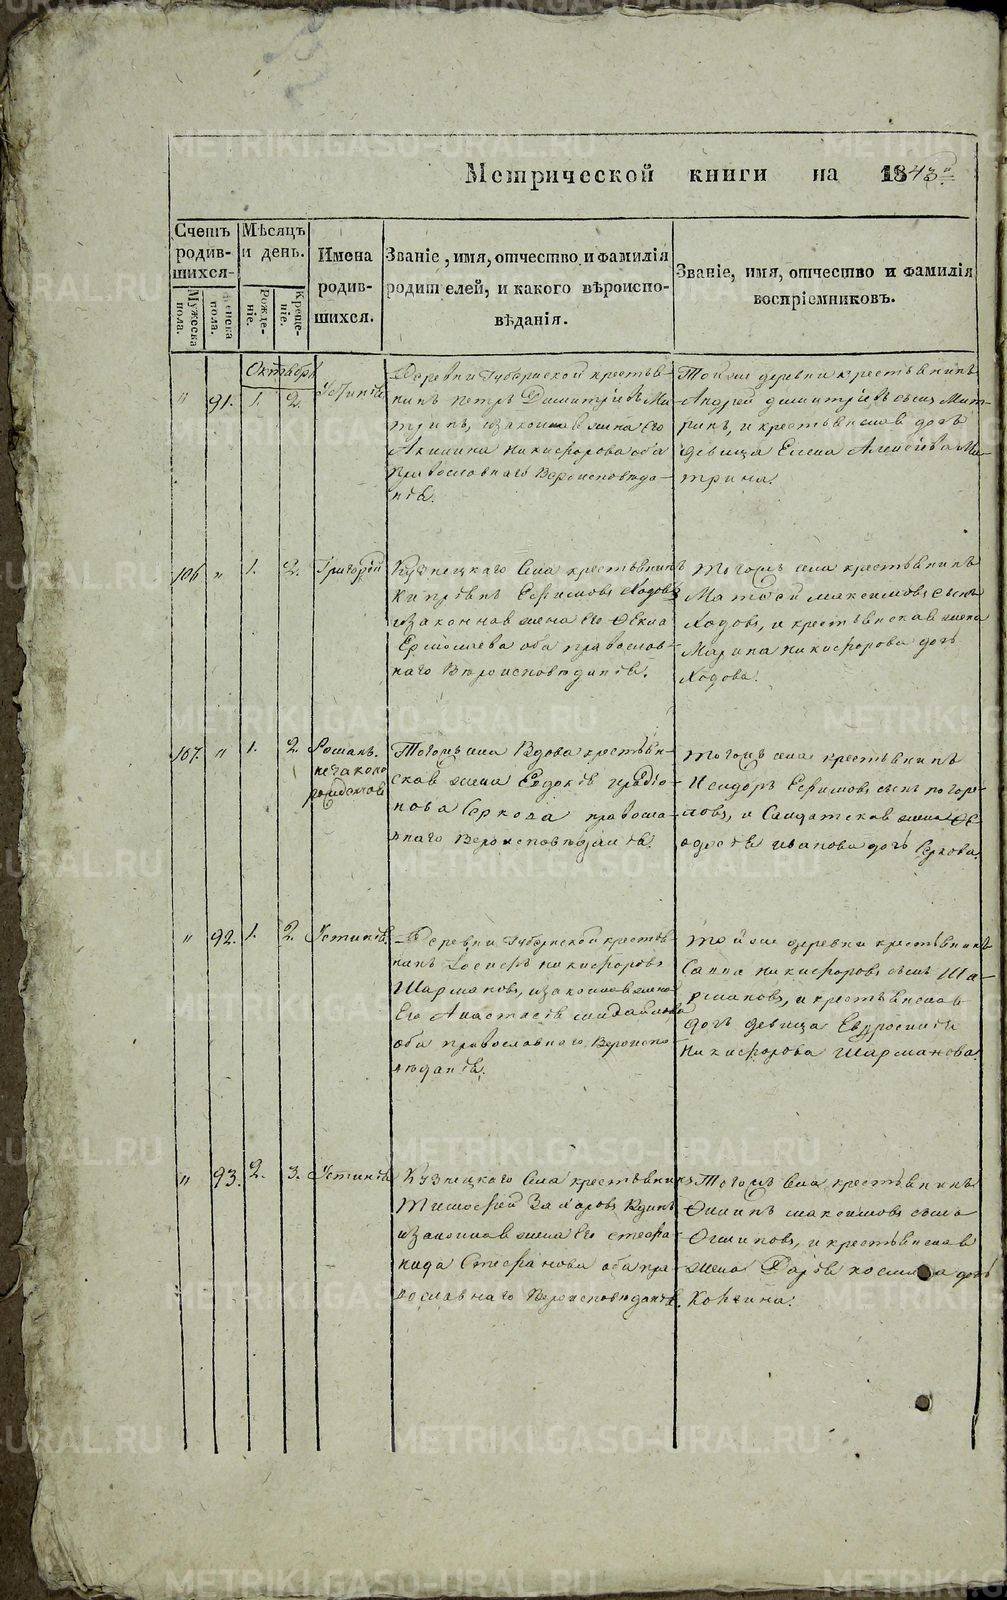 Метрической книги на 1843й
Счетъ родив-шихся
Мѣсяцъ и день.
Имена родив-шихся.
Званіе, имя, отчество и фамилія родителей, и какого вѣроиспо-вѣданія.
Званіе, имя, отчество и фамилія воспріемниковъ.
Мужеска пола.
Женска пола.
Рожде-ніе.
Креще-ніе.
Октябрь
" 91. 1. 2. Устинія
Деревни Губернской крестья-
нинъ Петръ Димитріевъ Ми-
тринъ, и законная жена его
Акилина Никифорова оба
православнаго Вероисповеда-
нія.
Той же деревни крестьянинъ
Андрей Димитріевъ сынъ Мит-
ринъ, и крестьянская дочь
девица Елена Алексеева Ми-
трина.
106 " 1. 2. Григорій
Кузнецкаго села крестьянинъ
Кипріянъ Ефимовъ Ходовъ
и законная жена его Фекла
Ермолаева оба православ-
наго Вероисповеданія.
Тогожъ села крестьянинъ
Матфей Максимовъ сынъ
Ходовъ, и крестьянская жена
Марина Никифорова дочь
Ходова.
107. " 1. 2. Романъ.
незаконо
рожденный
Тогожъ села Вдова крестьян-
ская жена Евдокія
нова Серкова правосла-
внаго Вероисповеданія.
Тогожъ села крестьянинъ
Исидоръ Ефимовъ сынъ Погоре-
ловъ, и Салдатская жена Фе-
одосія Иванова дочь Серкова.
" 92. 1. 2. Устинія
Деревни Губернской крестья-
нинъ Иосифъ Никифоровъ
Шармановъ, и законная жена
Его Анастасія Михайлова
оба православнаго Вероиспо-
веданія.
Той же деревни крестьянинъ
Савва Никифоровъ сынъ Ша-
рмановъ, и крестьянская
дочь девица Евфросинія
Никифорова Шарманова.
" 93. 2. 3. Устинія
Кузнецкаго села крестьянинъ
Тимофей Захаровъ Кузинъ
и законная жена Его Стефа-
нида Стефанова оба пра-
вославнаго Вероисповеданія.
Тогожъ села крестьянинъ
Филипъ Максимовъ сынъ
и крестьянская
жена Дарія дочь
METRIKI.GASO-URAL.RU